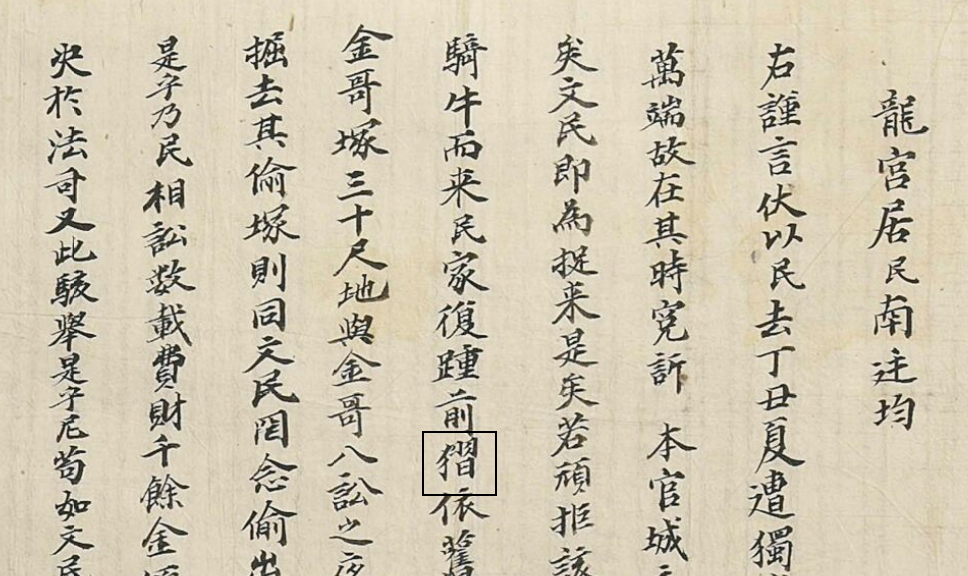 龍宮居民南廷均
右謹言伏以民去丁丑夏遭獨
萬端故在其時寃訴 本官城
矣文民即為捉来是矣若頑拒該
騎牛而来民家復踵前習依舊
金哥塚三十尺地與金哥入訟之
掘去其偷塚則同文民罔念偷出
是乎乃民相訟数載費財千餘金
决於法司又此駭擧是乎尼苟如文民